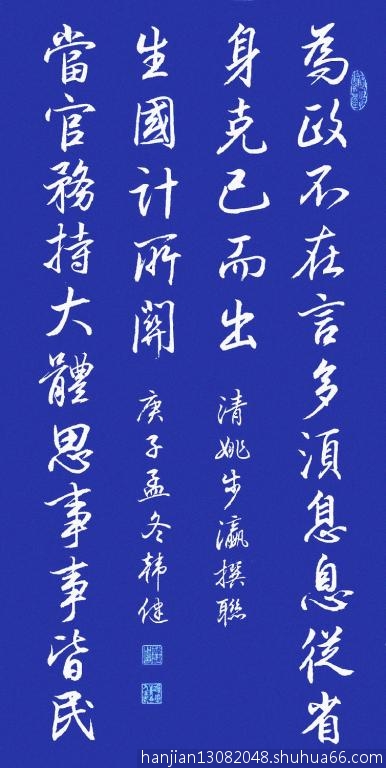 為政不在言多須息息從省
身克己而出
當官務持大體思事事皆民
生國計所關
清姚步瀛撰聯
庚子孟冬韓健
hanjian13082048.shuhua66.com